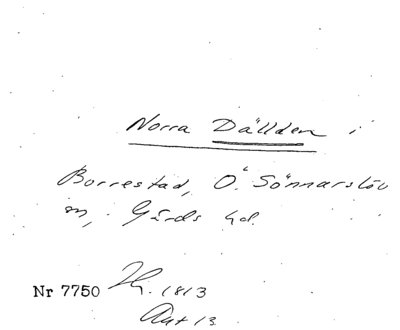 Norra Dällden i
Borrestad, Ö. Sönnarslöv
sn, Gärds hd.
Nr 7750 Hy. 1813
Akt 13